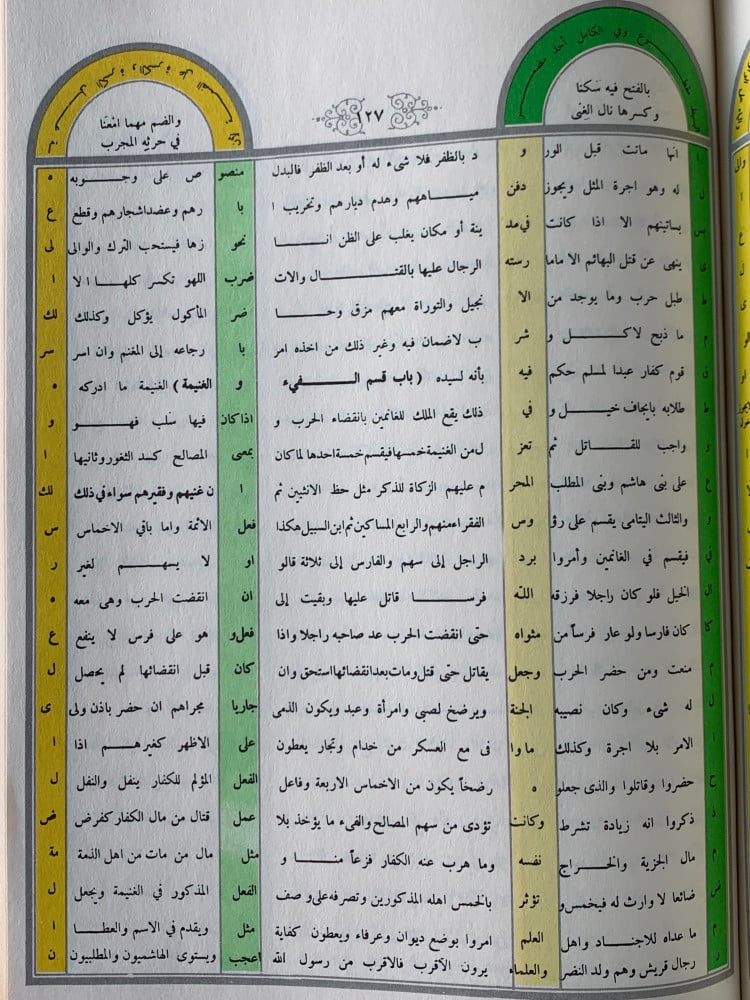 بالفتح فيه سكنا
وكسرها نال الغنى
١٢٧
والضم مهما امعنا
في حرثه المجرب
ا انها ماتت قبل الور و د بالظفر فلا شىء له أو بعد الظفر فالبدل منصو ص على وجـــوبه ه
ل له وهو اجرة المثل ويجوز دفن ميـــاههم وهدم ديارهم وتخريب ا با رهم وعضد اشجارهم وقطع ع
بس بساتينهم الا اذا كانت في مد ينة أو مكان يغلب على الظن انـــا نحو زها فيستحب الترك والوالى لى
ى ينهى عن قتل البهائم الا ماما رسته الرجال عليها بالقتـــال والات ضرب اللهو تكسر كلهـا الا ا
ط طبل حرب وما يوجد من الا نجيل والتوراة معهم مزق وحـــا ضر المأكول يؤكل وكذلك لك
م ما ذبح لاكـــل و شر ب لاضمان فيه وغير ذلك من اخذه امر با رجاعه إلى المغنم وان اسر سر
ق قوم كفار عبدا لمسلم حكم فيه بأنه لسيده (باب قسم الـــفيء و الغنيمة) الغنيمة ما ادركه ه
ط طلابه بايجاف خيـــل و في ذلك يقع الملك للغانمين بانقضاء الحرب و اذا كان فيها سلب فهـــو و
و واجب للقـــاتل ثم تعز ل من الغنيمة خمسها فيقسم خمسة احدها لما كان بمعى المصالح كسد الثغور وثانيها ا
ع على بنى هاشم وبنى المطلب المحر م عليهم الزكاة للذكر مثل حظ الانثيين ثم ا ن غنيهم وفقيرهم سواء في ذلك لك
و والثالث اليتامى يقسم على رؤ وس الفقراء منهم والرابع المساكين ثم ابن السبيل هكذا فعل الائمة واما باقي الاخماس س
في فيقسم في الغانمين وأمروا برد الراجل إلى سهم والفارس إلى ثلاثة قالو او لا يسهـــم لغير ر
ال الخيل فلو كان راجلا فرزقه الله فرســـا قاتل عليها وبقيت إلى ان انقضت الحرب وهى معه ه
كا كان فارسا ولو عار فرساً من مثواه حتى انقضت الحرب عد صاحبه راجلا واذا فعلو هو على فرس لا ينفع ع
م منعت ومن حضر الحرب وجعل يقاتل حتى قتل ومات بعد انقضائها استحق وان كان قبل انقضائها لم يحصل ل
ل له شىء وكان نصيبه الجنة ويرضخ لصبى وامرأة وعبد ويكون الذمى جاريا مجراهم ان حضر باذن ولى ى
ا الامر بلا اجرة وكذلك ما وا فى مع العسكر من خدام وتجار يعطون على الاظهر كغيرهـــم اذا ا
ح حضروا وقاتلوا والذى جعلو ه رضخاً يكون من الاخماس الاربعة وفاعل الفعل المؤلم للكفار ينفل والنفل ل
ذ ذكروا انه زيادة تشرط وكانت تؤدى من سهم المصالح والفىء ما يؤخذ بلا عمل قتال من مال الكفار كفرض ض
م مال الجزية والخـــراج نفسه وما هرب عنه الكفار فزعاً منـــا و مثل مال من مات من اهل الذمة مة
ض ضائعا لا وارث له فيخمس و تؤثر بالخمس اهله المذكورين وتصرفه على و صف الفعل المذكور في الغنيمة ويجعل ل
م ما عداه للاجنـــاد واهل العلم امروا بوضع ديوان وعرفاء ويعطون كفاية مثل ويقدم في الاسم والعطـــا ا
ر رجال قريش وهم ولد النضر والعلماء يرون الأقرب فالاقرب من رسول الله اعجب ويستوى الهاشميون والمطلبيون ن